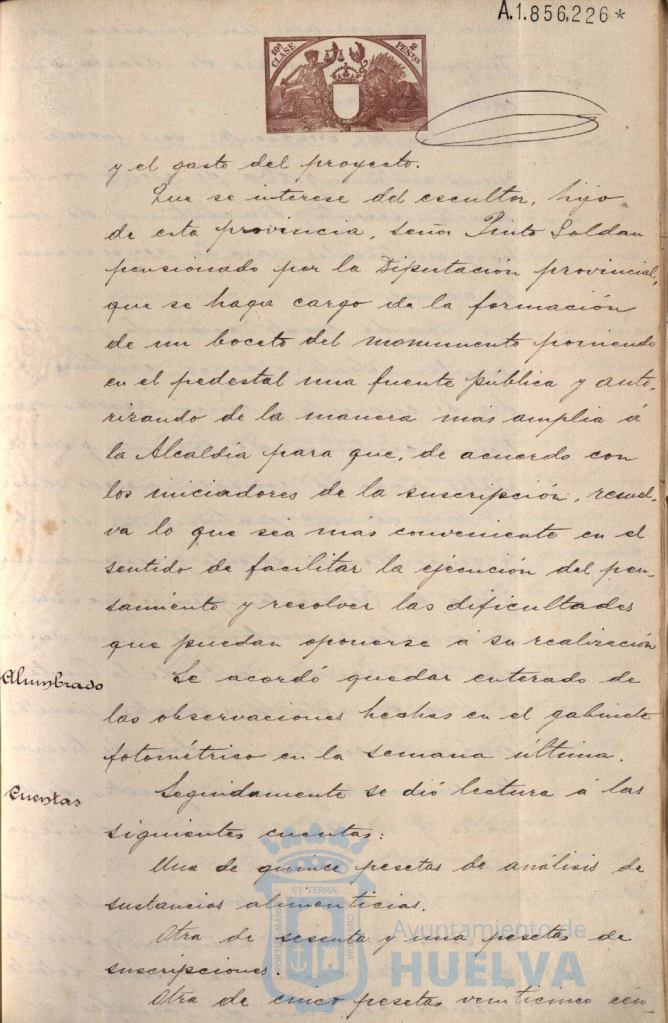 A.1.856,226*
10ª CLASE
2 PESETAS
y el gasto del proyecto.
Que se interese del escultor, hijo
de esta provincia, señor Pinto Soldan
pensionado por la Diputación provincial,
que se haga cargo de la formación
de un boceto del monumento poniendo
en el pedestal una fuente pública y auto-
rizando de la manera mas amplia á
la Alcaldía para que, de acuerdo con
los iniciadores de la suscripción, resuel-
va lo que sea más conveniente en el
sentido de facilitar la ejecución del pen-
samiento y resolver las dificultades
que puedan oponerse á su realización
Alumbrado
Se acordó quedar enterado de
las observaciones hechas en el gabinete
fotométrico en la semana última.
Cuentas
Seguidamente se dió lectura á las
siguientes cuentas:
Una de quince pesetas de análisis de
sustancias alimenticias.
Otra de sesenta y una pesetas de
suscripciones.
Otra de cinco pesetas veinticinco cén-
PORTUS MARIS ET TERRÆ CUSTODIA
Ayuntamiento de
HUELVA